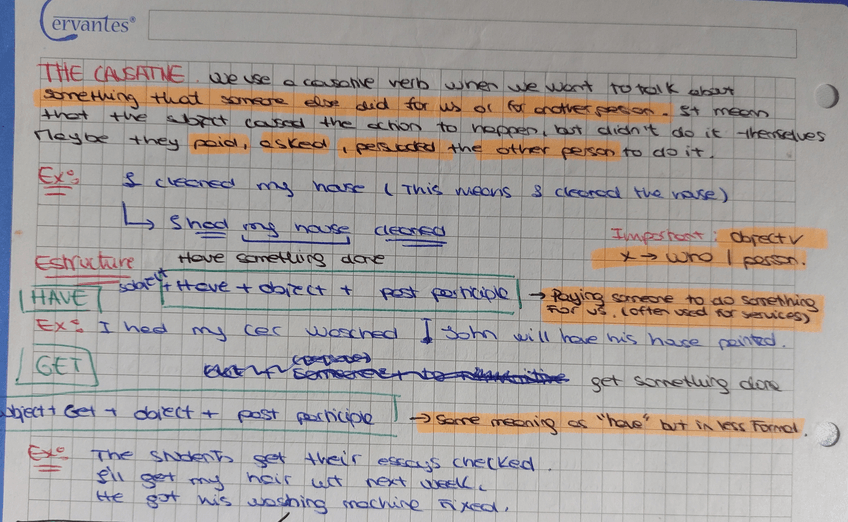 Cervantes®
THE CAUSATIVE. We use a causative verb when we want to talk about
something that someone else did for us or for another person. It mean
that the subject caused the action to happen, but didn't do it themselves
Maybe they paid, asked, persuaded the other person to do it.
Ex: I cleaned my house (This means I cleaned the house)
↳ I had my house cleaned
Important: object ✓
x → who / person.
Estructure Have something done
HAVE subject + Have + object + past participle → Paying someone to do something
For us. (often used for services)
Ex: I had my car washed I John will have his house painted.
GET get something done
object + Get + object + past participle → Same meaning as "have" but in less Formal.
Ex: The students get their essays checked.
I'll get my hair cut next week.
He got his washing machine fixed.